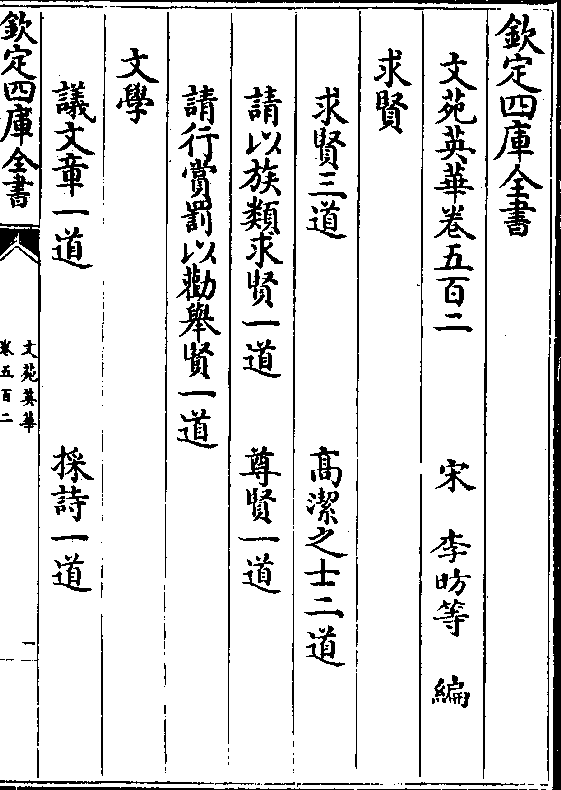 欽定四庫全書
文苑英華卷五百二　宋　李昉等　編
求賢
求賢三道　高潔之士二道
請以族類求賢一道　尊賢一道
請行賞罰以勸舉賢一道
文學
議文章一道　採詩一道
欽定四庫全書
文苑英華
卷五百二
一